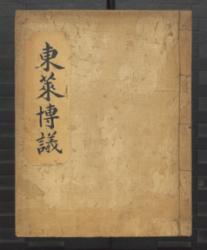 東萊博議